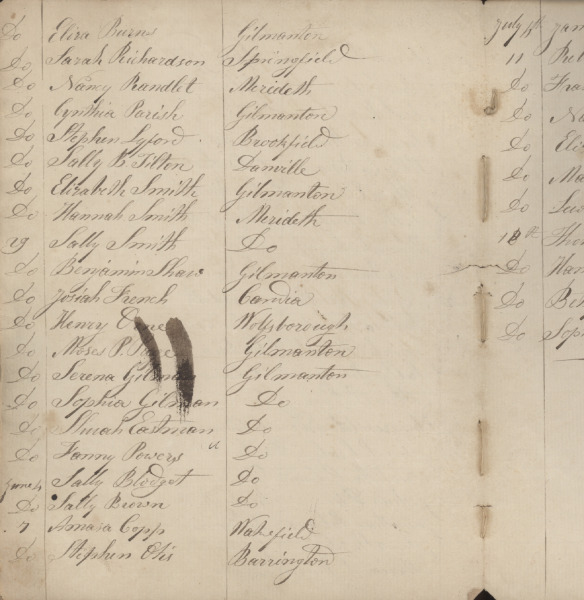 Do Eliza Burns Gilmanton
Do Sarah Richardson Springfield
Do Nancy Randlet Merideth
Do Cynthia Parish Gilmanton
Do Stephen Lyford Brookfield
Do Sally B. Tilton Danville
Do Elizabeth Smith Gilmanton
Do Hannah Smith Merideth
29 Sally Smith Do
Do Benjamin Shaw Gilmanton
Do Josiah French Candia
Do Henry Wolfsborough
Do Moses P. Gilmanton
Do Serena Gilman Gilmanton
Do Sophia Gilman Do
Do Shuah Eastman Do
Do Fanny Powers Do
June 4 Sally Blodget Do
Do Sally Brown Do
7 Amasa Copp Wakefield
Do Stephen Otis Barrington
July 4th
11
Do
Do
Do
Do
Do
18th
Do
Do
Do